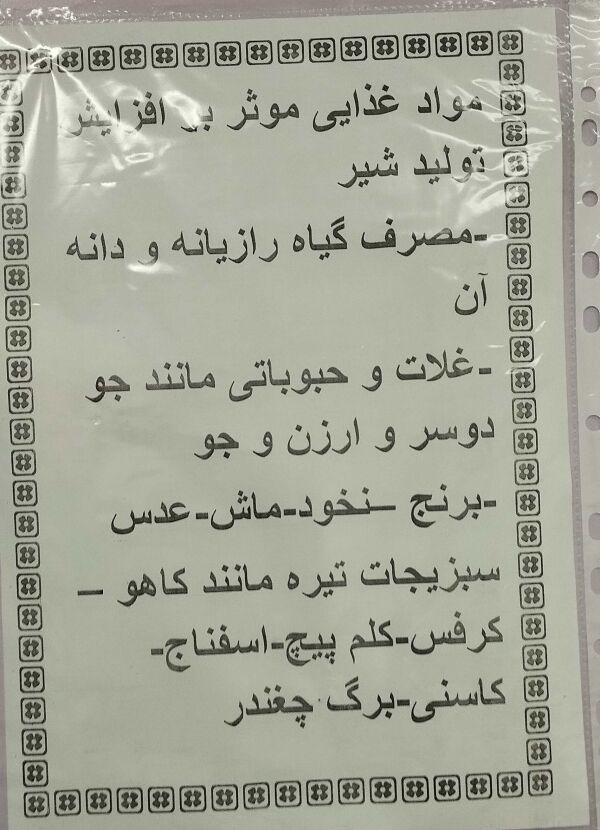 مواد غذایی موثر بر افزایش
تولید شیر
-مصرف گیاه رازیانه و دانه
آن
-غلات و حبوباتی مانند جو
دوسر و ارزن و جو
-برنج –نخود-ماش-عدس
سبزیجات تیره مانند کاهو –
کرفس-کلم پیچ-اسفناج-
کاسنی-برگ چغندر